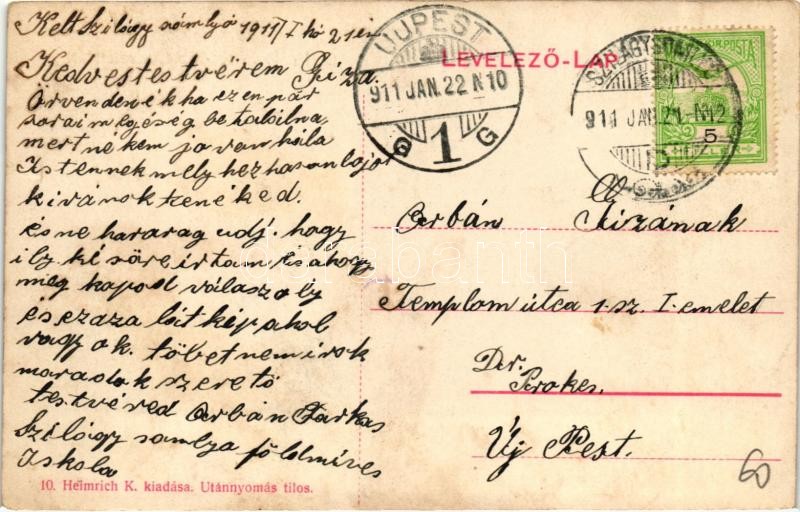 Kelt Szilágy sómlyó 1911/I hó 21én
Kedves testvérem Giza.
Örvendenék ha ezen pár
soraim egéség be találna
mert nekem jo van hála
Istennek mely hez hasonlojót
kivánok tenéked.
és ne hararag udj. hogy
ily késöre irtam és ahogy
meg kapod válaszolj
és ez az a látkép ahol
vagyok. töbet nem irok
maradok szeretö
testvéred Orbán Farkas
Szilágy somlya földmives
Iskola
10. Heimrich K. kiadása. Utánnyomás tilos.
LEVELEZŐ-LAP
UJPEST
911 JAN. 22 N 10
1
G
SZILÁGYSOM
911 JAN. 21. N12
POSTA
5
Orbán Gizának
Templom útca 1. sz. I-emelet
Dr.
Prokes.
Új Pest.
60
darabanth